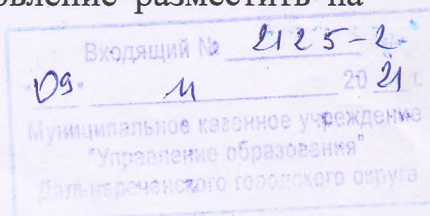 овление разместить на
Входящий № 2125-2
"09" 11 2021 г.
Муниципальное казенное учреждение
"Управление образования"
Дальнереченского городского округа